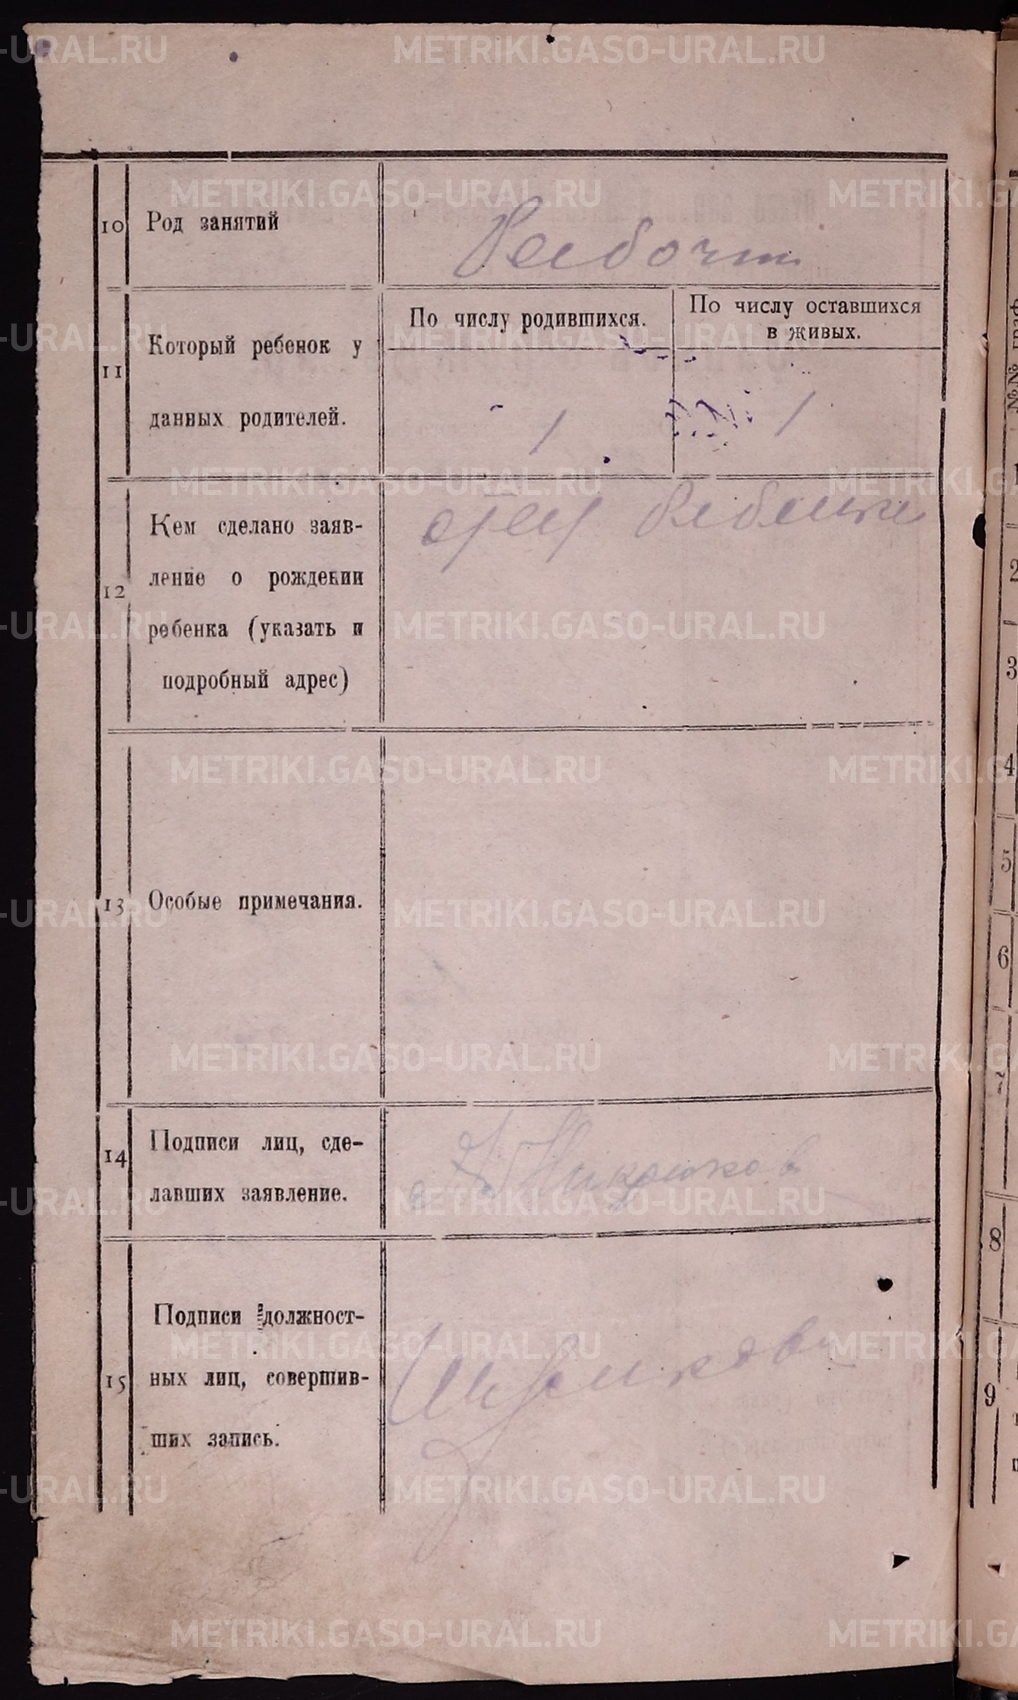 METRIKI.GASO-URAL.RU
10 Род занятий
Рабочий
11 Который ребенок у
данных родителей.
По числу родившихся.
По числу оставшихся
в живых.
1
1
12 Кем сделано заяв-
ление о рождении
ребенка (указать и
подробный адрес)
отец ребенка
13 Особые примечания.
14 Подписи лиц, сде-
лавших заявление.
15 Подписи должност-
ных лиц, совершив-
ших запись.
№№ граф
1
2
3
4
5
6
7
8
9